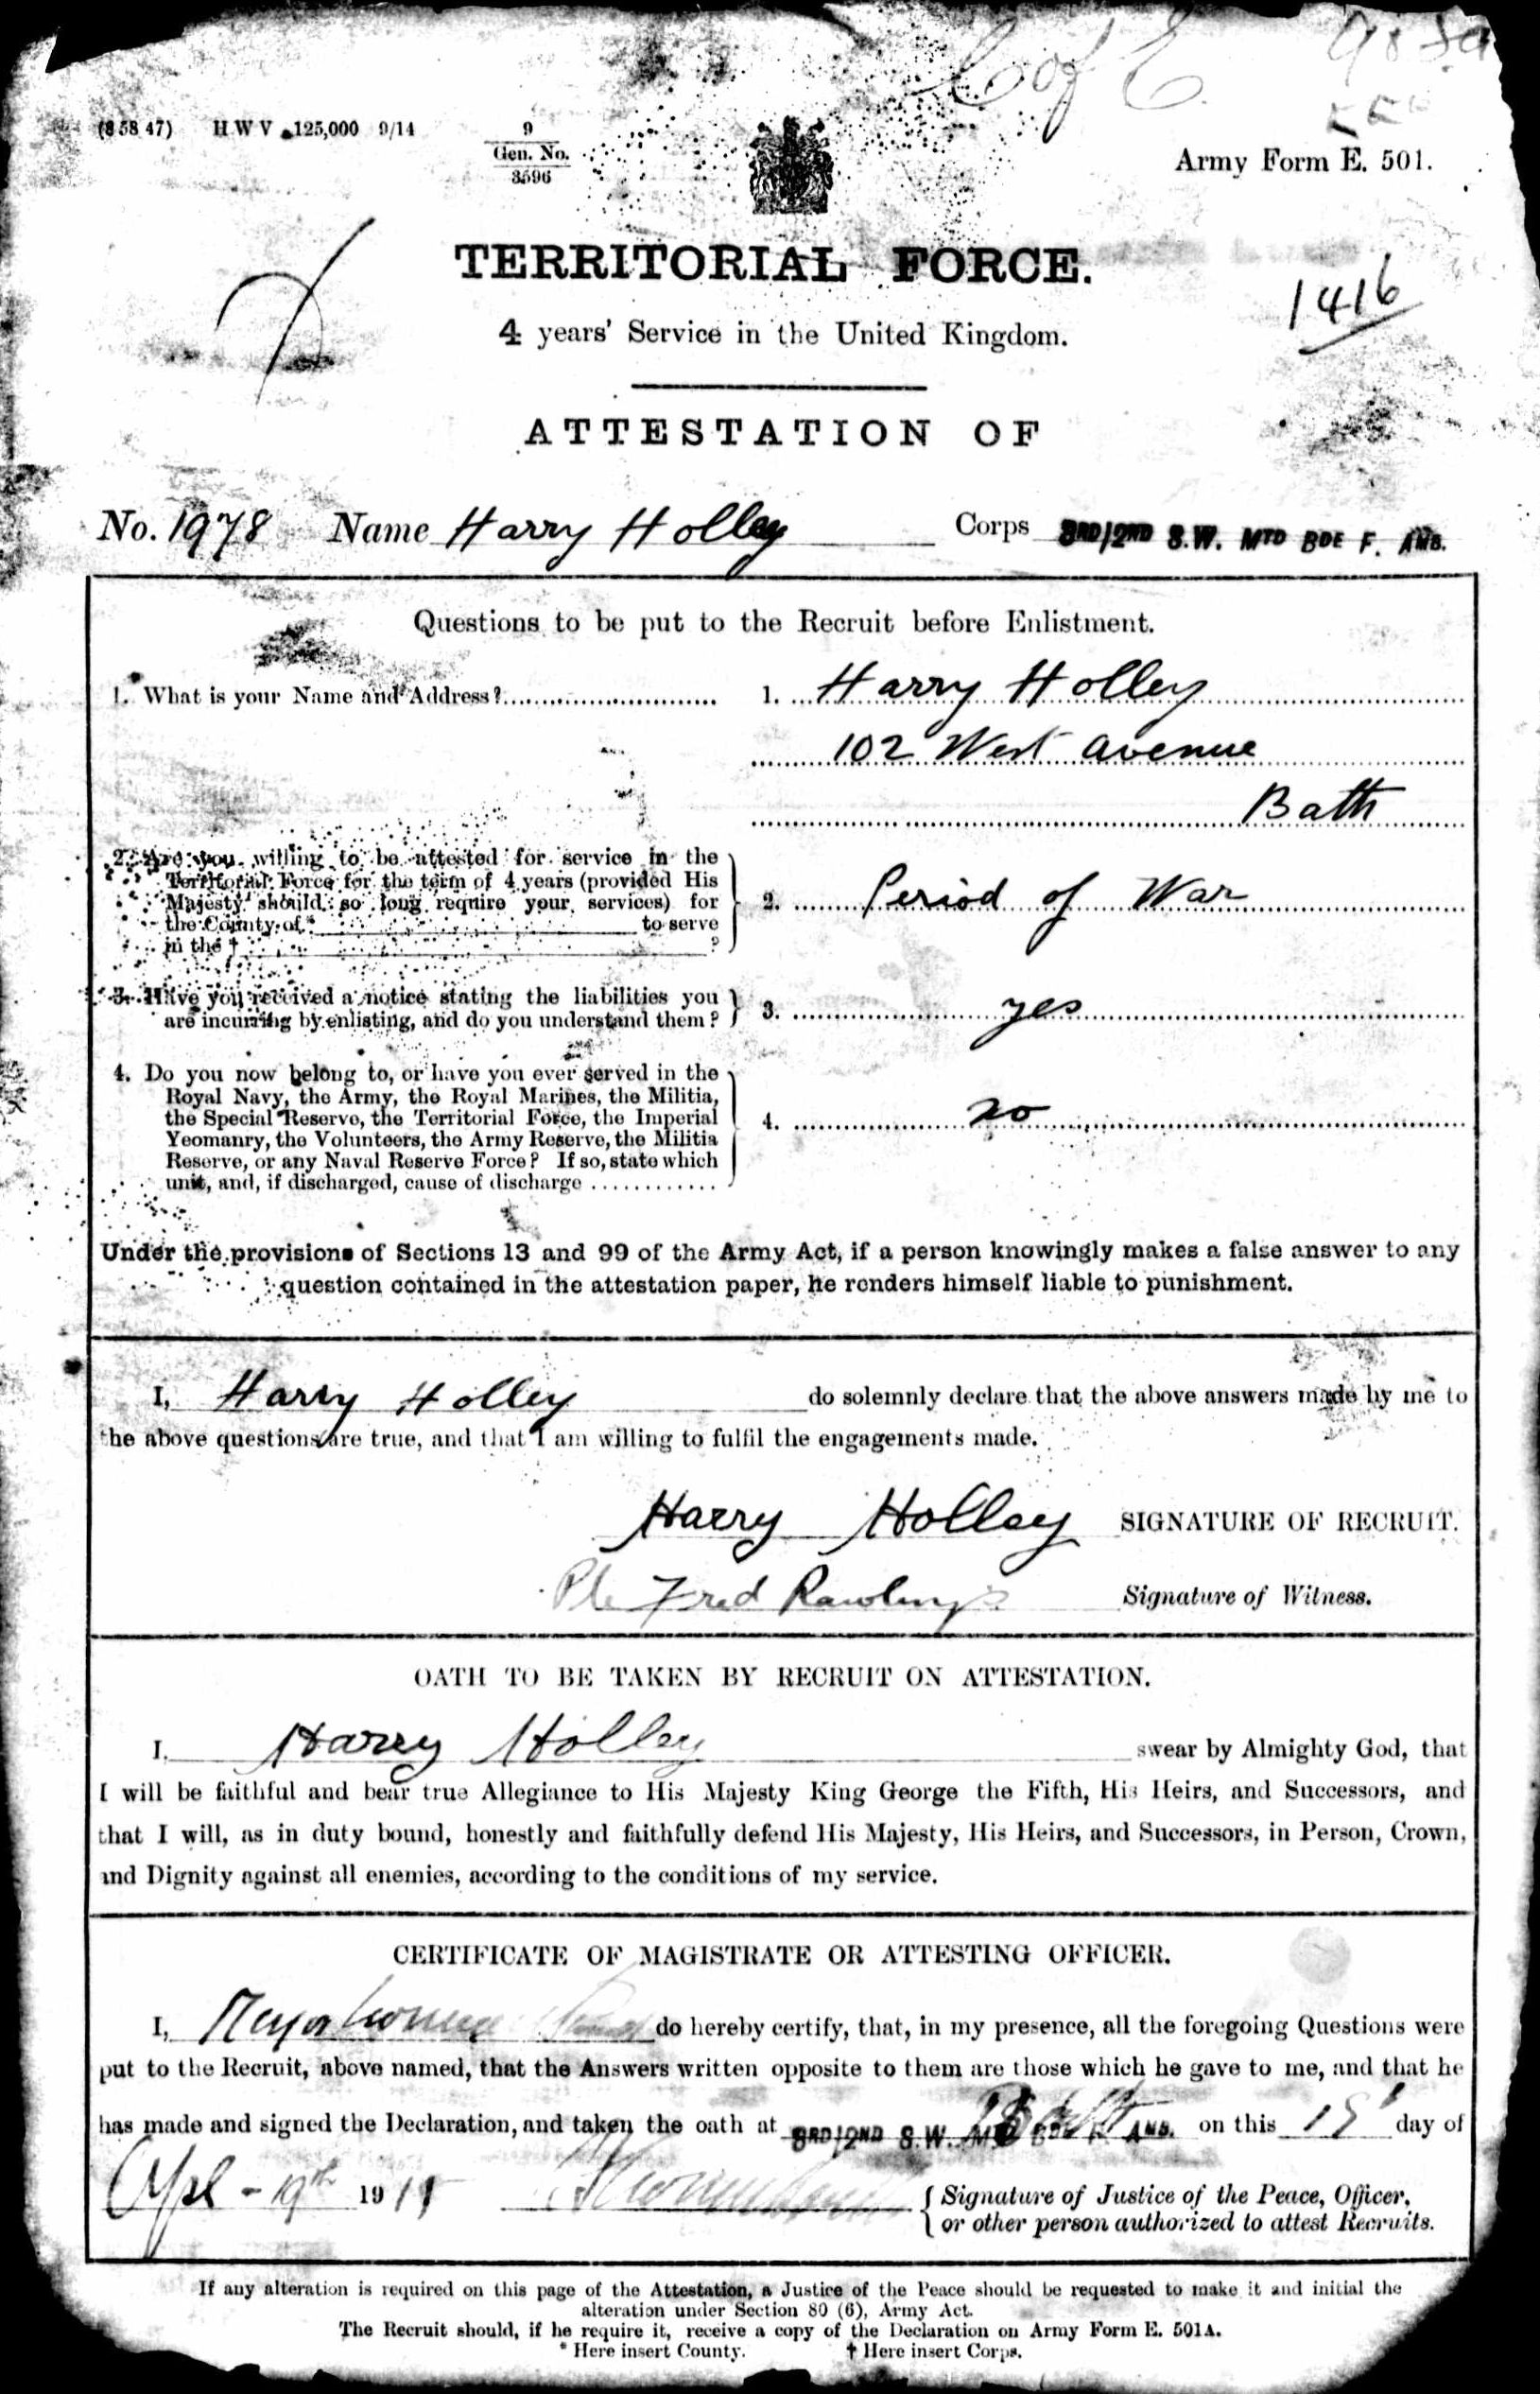 C of E.
(8 58 47) H W V 125,000 9/14
9
Gen. No.
3596
Army Form E. 501.
TERRITORIAL FORCE.
1416
4 years' Service in the United Kingdom.
ATTESTATION OF
No. 1978 Name Harry Holley Corps 3RD/2ND S.W. MTD BDE F. AMB.
Questions to be put to the Recruit before Enlistment.
1. What is your Name and Address?........................ 1. Harry Holley
102 West Avenue
Bath
2. Are you willing to be attested for service in the
Territorial Force for the term of 4 years (provided His
Majesty should so long require your services) for
the County of * to serve
in the † ?
2. Period of War
3. Have you received a notice stating the liabilities you
are incurring by enlisting, and do you understand them?
3. yes
4. Do you now belong to, or have you ever served in the
Royal Navy, the Army, the Royal Marines, the Militia,
the Special Reserve, the Territorial Force, the Imperial
Yeomanry, the Volunteers, the Army Reserve, the Militia
Reserve, or any Naval Reserve Force? If so, state which
unit, and, if discharged, cause of discharge ............
4. no
Under the provisions of Sections 13 and 99 of the Army Act, if a person knowingly makes a false answer to any
question contained in the attestation paper, he renders himself liable to punishment.
I, Harry Holley do solemnly declare that the above answers made by me to
the above questions are true, and that I am willing to fulfil the engagements made.
Harry Holley SIGNATURE OF RECRUIT.
Pte Fred Rawlings Signature of Witness.
OATH TO BE TAKEN BY RECRUIT ON ATTESTATION.
I, Harry Holley swear by Almighty God, that
I will be faithful and bear true Allegiance to His Majesty King George the Fifth, His Heirs, and Successors, and
that I will, as in duty bound, honestly and faithfully defend His Majesty, His Heirs, and Successors, in Person, Crown,
and Dignity against all enemies, according to the conditions of my service.
CERTIFICATE OF MAGISTRATE OR ATTESTING OFFICER.
I, Major do hereby certify, that, in my presence, all the foregoing Questions were
put to the Recruit, above named, that the Answers written opposite to them are those which he gave to me, and that he
has made and signed the Declaration, and taken the oath at 3RD/2ND S.W. MTD BDE F. AMB. Bath on this 19 day of
Apl - 19th 1915 Signature of Justice of the Peace, Officer,
or other person authorized to attest Recruits.
If any alteration is required on this page of the Attestation, a Justice of the Peace should be requested to make it and initial the
alteration under Section 80 (6), Army Act.
The Recruit should, if he require it, receive a copy of the Declaration on Army Form E. 501A.
* Here insert County. † Here insert Corps.